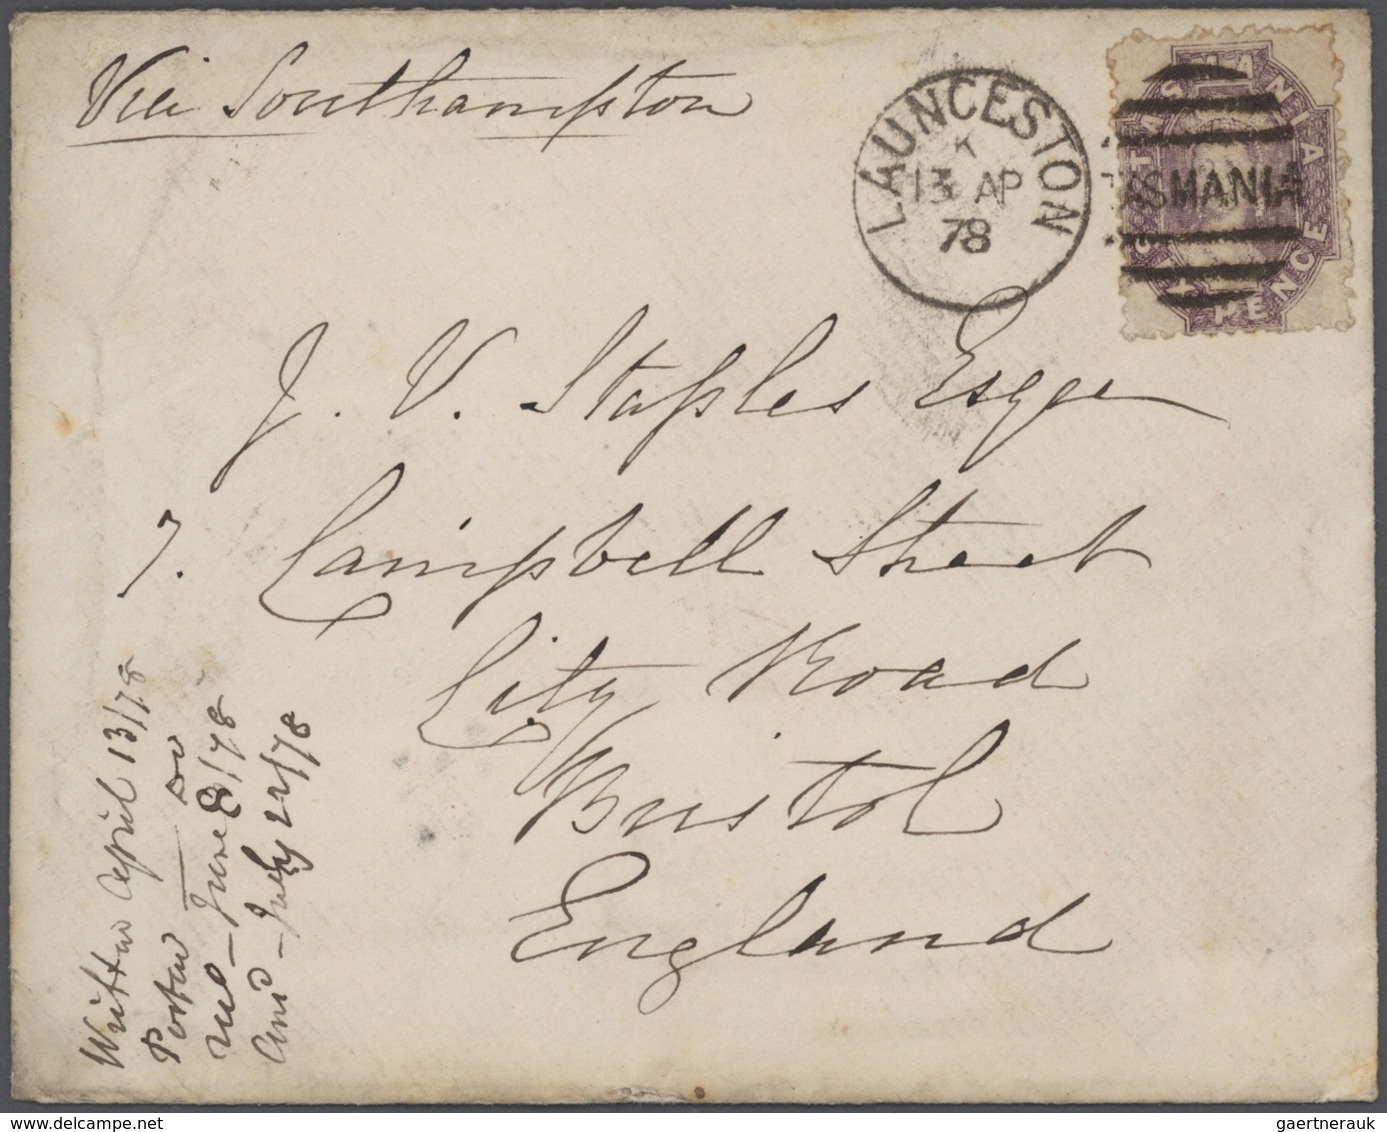 Via Southampton
LAUNCESTON
K
13 AP
78
TASMANIA
TASMANIA
SIX PENCE
J. V. Staples Esqre
7. Campbell Street
City Road
Bristol
England
Written April 13/78
Posted Do
Recd - June 8/78
Ansd - July 22/78
gaertnerauk